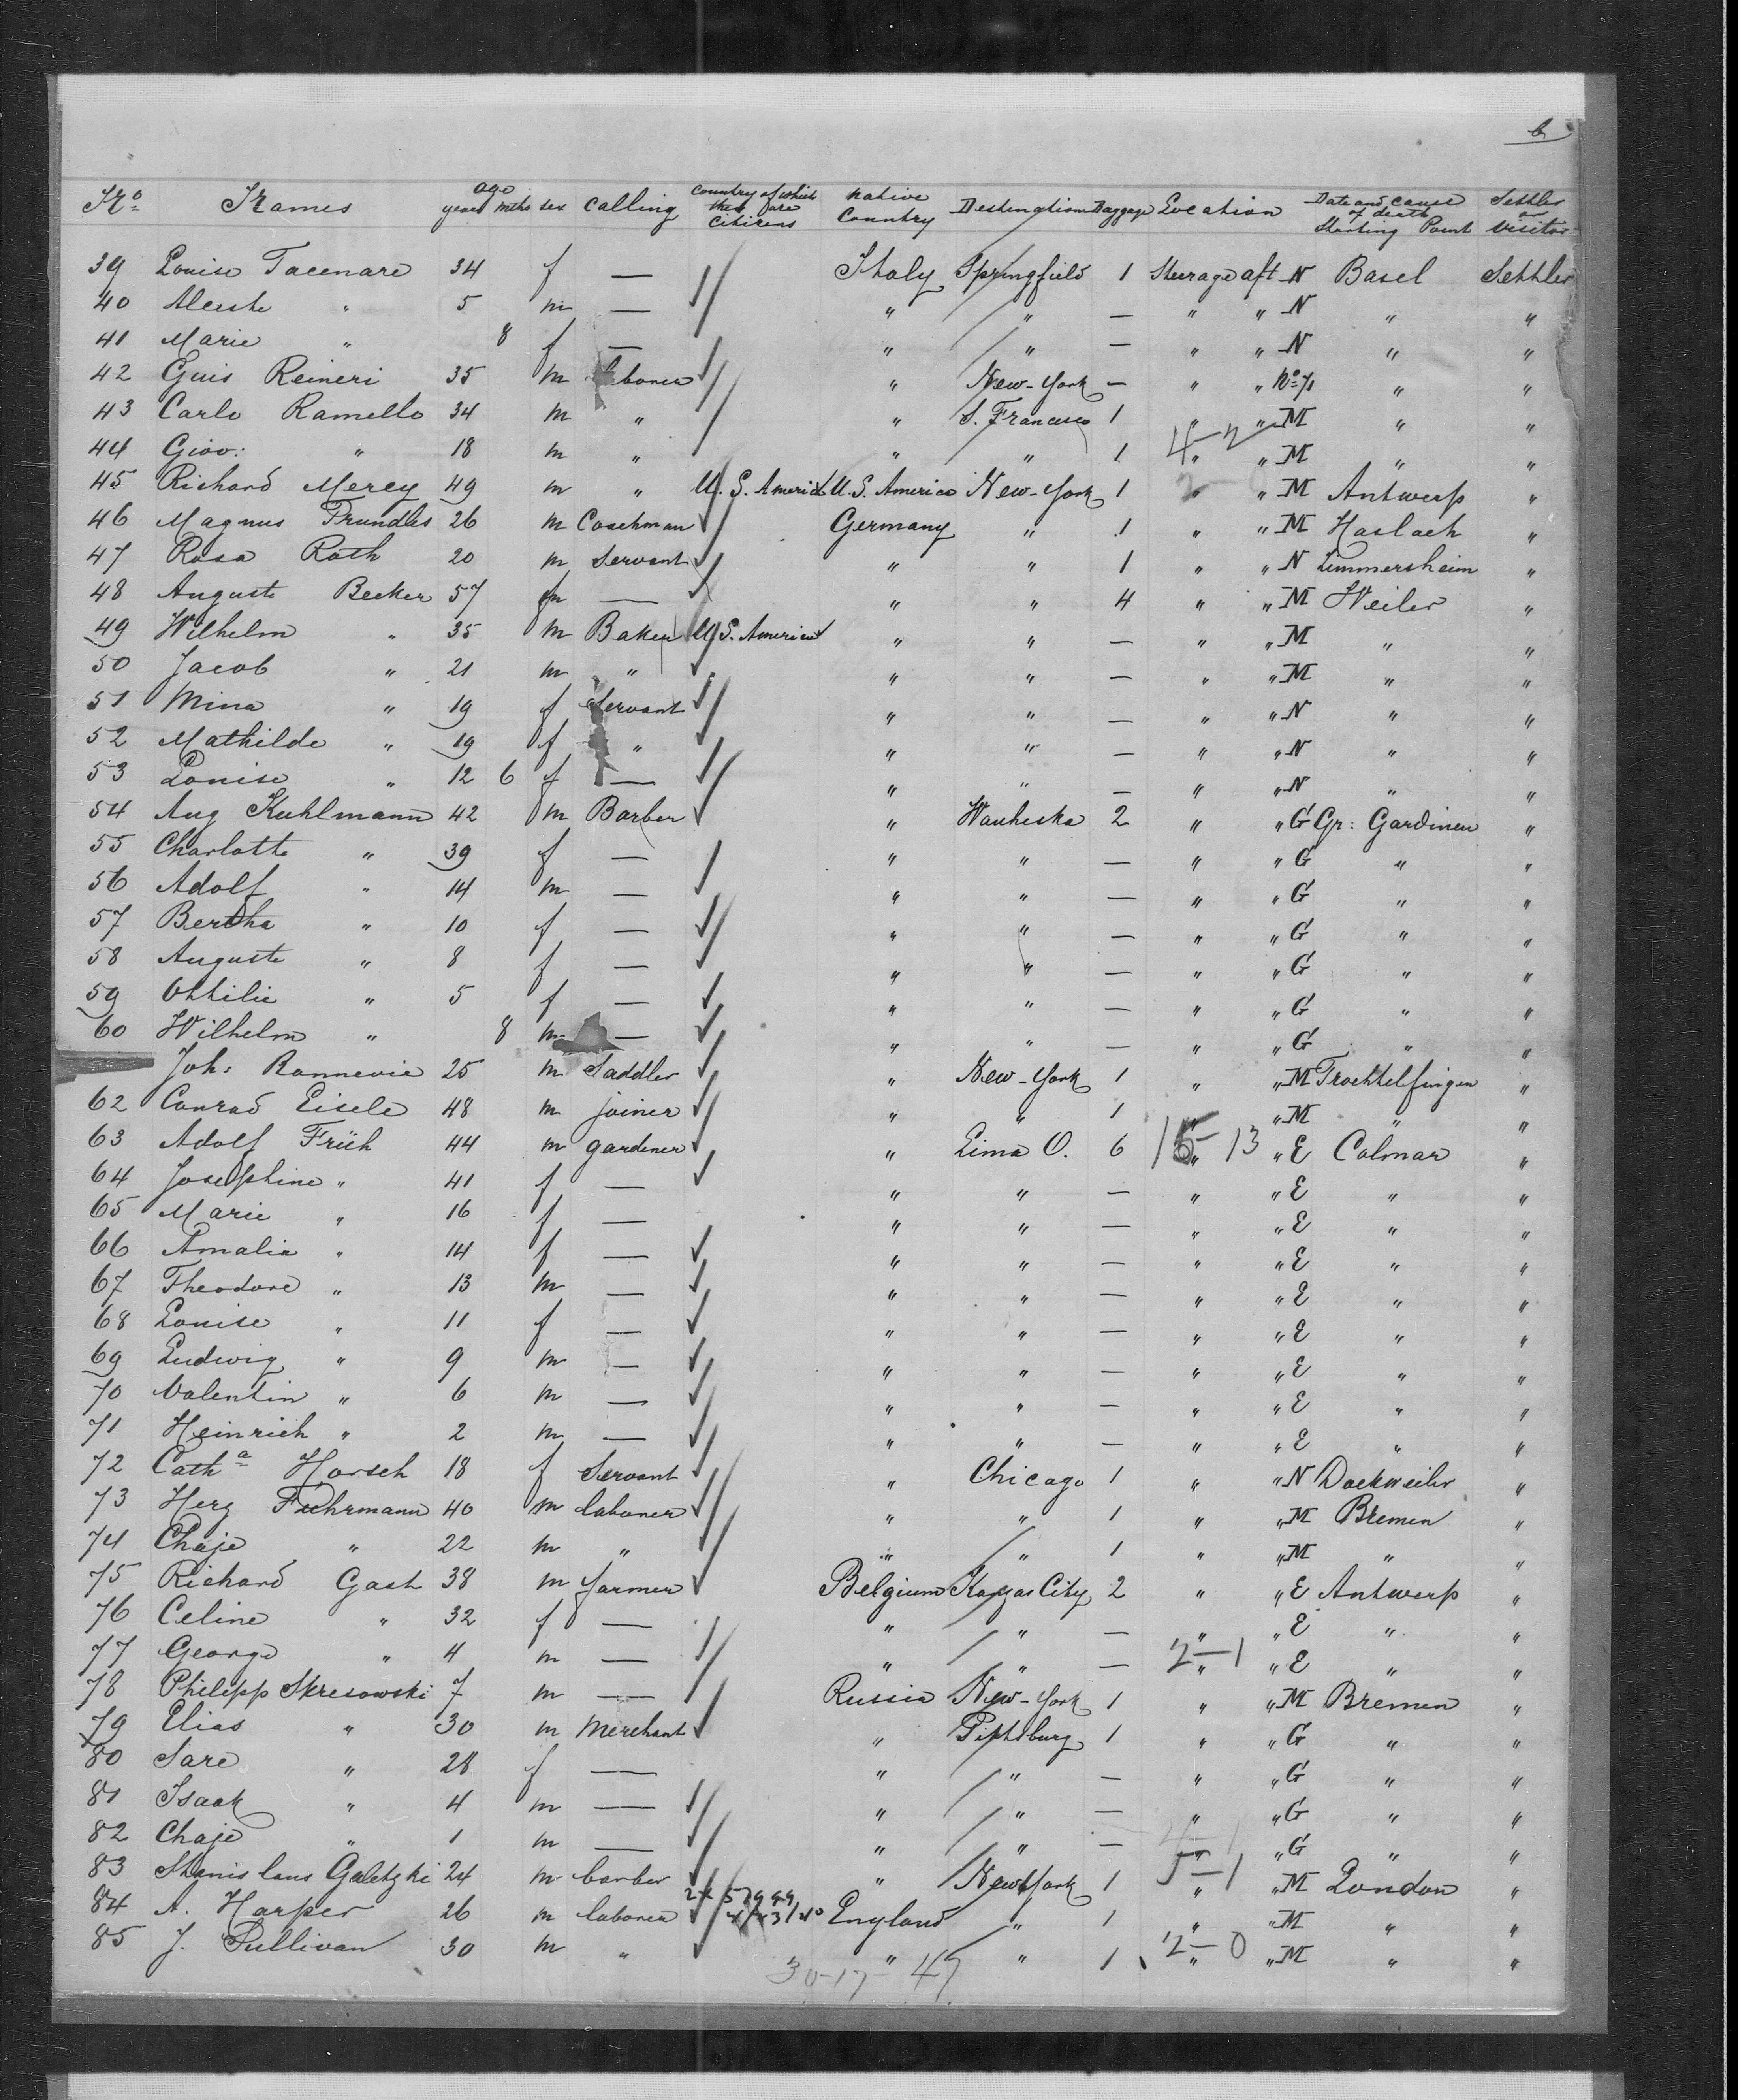 6
No Names age years mths sex calling country of which they are citizens native Country Destination Baggage Location Date and cause of death Starting Point Settler or visitor
39 Louise Tacenare 34 f — Italy Springfield 1 Steerage aft N Basel Settler
40 " 5 m — " " — " " N " "
41 Marie " 8 f — " " — " " N " "
42 Guis Reineri 35 m laborer " New-York — " " No 1 " "
43 Carlo Ramello 34 m " " S. Francisco 1 " " M " "
44 Giov: " 18 m " " " 1 4-2 " " M " "
45 Richard Mercy 49 m " U. S. America U.S. America New-York 1 " " M Antwerp "
46 Magnus Trundles 26 m Coachman Germany " 1 " " M Haslach "
47 Rosa Roth 20 m Servant " " 1 " " N Zimmersheim "
48 Auguste Becker 57 — " " 4 " " M Weiler "
49 Wilhelm " 35 m Baker U.S. America " " — " " M " "
50 Jacob " 21 m " " " — " " M " "
51 Mina " 19 f Servant " " — " " N " "
52 Mathilde " 19 f " " " — " " N " "
53 Louise " 12 6 f — " " — " " N " "
54 Aug Kuhlmann 42 m Barber " Wauheska 2 " " G Gr: Gardinen "
55 Charlotte " 39 f — " " — " " G " "
56 Adolf " 14 m — " " — " " G " "
57 Bertha " 10 f — " " — " " G " "
58 Auguste " 8 f — " " — " " G " "
59 Ottilie " 5 f — " " — " " G " "
60 Wilhelm " 8 m — " " — " " G " "
Joh: Rannevie 25 m Saddler " New-York 1 " " M Trochtelfingen "
62 Conrad Eisele 48 m joiner " " 1 " " M " "
63 Adolf Früh 44 m gardener " Lima O. 6 15-13 " " E Colmar "
64 Josephine " 41 f — " " — " " E " "
65 Marie " 16 f — " " — " " E " "
66 Amalia " 14 f — " " — " " E " "
67 Theodore " 13 m — " " — " " E " "
68 Louise " 11 f — " " — " " E " "
69 Ludwig " 9 m — " " — " " E " "
70 Valentin " 6 m — " " — " " E " "
71 Heinrich " 2 m — " " — " " E " "
72 Catha Horsch 18 f Servant " Chicago 1 " " N Dockweiler "
73 Herz Fuhrmann 40 m laborer " " 1 " " M Bremen "
74 Chaje " 22 m " " " 1 " " M " "
75 Richard Gast 38 m farmer Belgium Kansas City 2 " " E Antwerp "
76 Celine " 32 f — " " — " " E " "
77 George " 4 m — " " — 2-1 " " E " "
78 Philipp Skresowski 7 m — Russia New-York 1 " " M Bremen "
79 Elias " 30 m Merchant " Pittsburg 1 " " G " "
80 Sare " 28 f — " " — " " G " "
81 Isaak " 4 m — " " — " " G " "
82 Chaje " 1 m — " " — " " G " "
83 Stanislaus Galetzki 24 m barber " New York 1 5-1 " " M London "
84 A. Harper 26 m laborer England " 1 " " M " "
85 J. Sullivan 30 m " " " 1 2-0 " " M " "
30-17-47